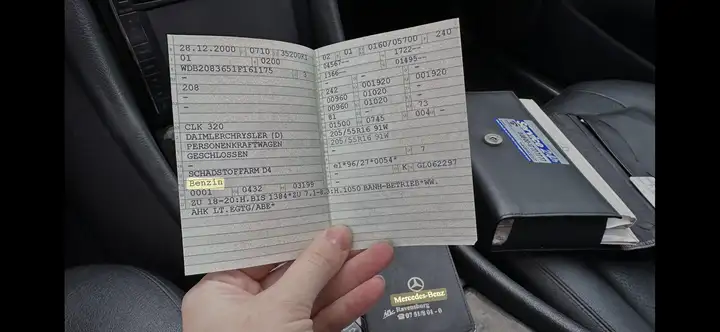 28.12.2000 0710 35200R1
01 0200
WDB2083651F161175 1
-
208
-
-
CLK 320
DAIMLERCHRYSLER (D)
PERSONENKRAFTWAGEN
GESCHLOSSEN
-
SCHADSTOFFARM D4
Benzin
0001 0432 03199
ZU 18-20:H.BIS 1384*ZU 7.1-8.
AHK LT.EGTG/ABE*
02 01 0160/05700 240
04567-- 1722--
1386-- 01495--
- -
242 001920 001920
00960 01020 -
00960 01020 -
81 73
01500 0745 004 -
205/55R16 91W
205/55R16 91W
-
- 7
e1*96/27*0054*
K GL062297
:H.1050 BAHB-BETRIEB*WW.
Mercedes-Benz
Ravensburg
☎ 07 51/8 01-0